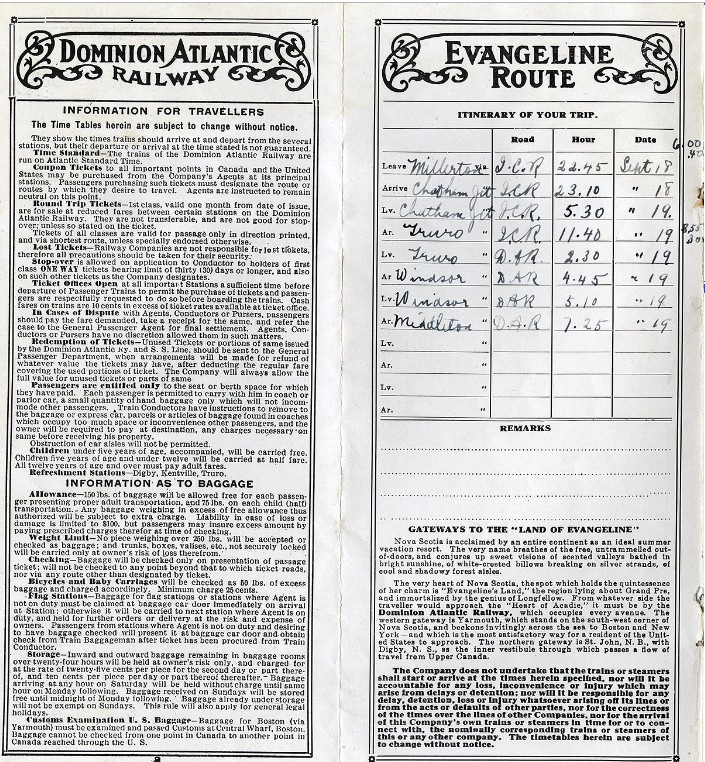 DOMINION ATLANTIC
RAILWAY
INFORMATION FOR TRAVELLERS
The Time Tables herein are subject to change without notice.
They show the times trains should arrive at and depart from the several
stations, but their departure or arrival at the time stated is not guaranteed.
Time Standard—The trains of the Dominion Atlantic Railway are
run on Atlantic Standard Time.
Coupon Tickets to all important points in Canada and the United
States may be purchased from the Company's Agents at its principal
stations. Passengers purchasing such tickets must designate the route or
routes by which they desire to travel. Agents are instructed to remain
neutral on this point.
Round Trip Tickets—1st class, valid one month from date of issue,
are for sale at reduced fares between certain stations on the Dominion
Atlantic Railway. They are not transferable, and are not good for stop-
over; unless so stated on the ticket.
Tickets of all classes are valid for passage only in direction printed,
and via shortest route, unless specially endorsed otherwise.
Lost Tickets—Railway Companies are not responsible for lost tickets,
therefore all precautions should be taken for their security.
Stop-over is allowed on application to Conductor to holders of first
class ONE WAY tickets bearing limit of thirty (30) days or longer, and also
on such other tickets as the Company designates.
Ticket Offices Open at all important Stations a sufficient time before
departure of Passenger Trains to permit the purchase of tickets and passen-
gers are respectfully requested to do so before boarding the trains. Cash
fares on trains are 10 cents in excess of ticket rates available at ticket office.
In Cases of Dispute with Agents, Conductors or Pursers, passengers
should pay the fare demanded, take a receipt for the same, and refer the
case to the General Passenger Agent for final settlement. Agents, Con-
ductors or Pursers have no discretion allowed them in such matters.
Redemption of Tickets—Unused Tickets or portions of same issued
by the Dominion Atlantic Ry. and S. S. Line, should be sent to the General
Passenger Department, when arrangements will be made for refund of
whatever value the tickets may have, after deducting the regular fare
covering the used portions of ticket. The Company will always allow the
full value for unused tickets or parts of same
Passengers are entitled only to the seat or berth space for which
they have paid. Each passenger is permitted to carry with him in coach or
parlor car, a small quantity of hand baggage only which will not incom-
mode other passengers. Train Conductors have instructions to remove to
the baggage or express car, parcels or articles of baggage found in coaches
which occupy too much space or inconvenience other passengers, and the
owner will be required to pay at destination, any charges necessary on
same before receiving his property.
Obstruction of car aisles will not be permitted.
Children under five years of age, accompanied, will be carried free.
Children five years of age and under twelve will be carried at half fare.
All twelve years of age and over must pay adult fares.
Refreshment Stations—Digby, Kentville, Truro.
INFORMATION AS TO BAGGAGE
Allowance—150 lbs. of baggage will be allowed free for each passen-
ger presenting proper adult transportation, and 75 lbs. on each child (half)
transportation. Any baggage weighing in excess of free allowance thus
authorized will be subject to extra charge. Liability in case of loss or
damage is limited to $100, but passengers may insure excess amount by
paying prescribed charges therefor at time of checking.
Weight Limit—No piece weighing over 250 lbs. will be accepted or
checked as baggage; and trunks, boxes, valises, etc., not securely locked
will be carried only at owner's risk of loss therefrom.
Checking—Baggage will be checked only on presentation of passage
ticket; will not be checked to any point beyond that to which ticket reads,
nor via any route other than designated by ticket.
Bicycles and Baby Carriages will be checked as 50 lbs. of excess
baggage and charged accordingly. Minimum charge 25 cents.
Flag Stations—Baggage for flag stations or stations where Agent is
not on duty must be claimed at baggage car door immediately on arrival
at Station; otherwise it will be carried to next station where Agent is on
duty, and held for further orders or delivery at the risk and expense of
owners. Passengers from stations where Agent is not on duty and desiring
to have baggage checked will present it at baggage car door and obtain
check from Train Baggageman after ticket has been procured from Train
Conductor.
Storage—Inward and outward baggage remaining in baggage rooms
over twenty-four hours will be held at owner's risk only, and charged for
at the rate of twenty-five cents per piece for the second day or part there-
of, and ten cents per piece per day or part thereof thereafter. Baggage
arriving at any hour on Saturday will be held without charge until same
hour on Monday following. Baggage received on Sundays will be stored
free until midnight of Monday following. Baggage already under storage
will not be exempt on Sundays. This rule will also apply for general legal
holidays.
Customs Examination U. S. Baggage—Baggage for Boston (via
Yarmouth) must be examined and passed Customs at Central Wharf, Boston.
Baggage cannot be checked from one point in Canada to another point in
Canada reached through the U. S.
EVANGELINE
ROUTE
ITINERARY OF YOUR TRIP.
Road Hour Date
Leave Millerton via I.C.R 22.45 Sept 18
Arrive Chatham Jct I.C.R 23.10 " 18
Lv. Chatham Jct I.C.R. 5.30 " 19.
Ar. Truro " I.C.R 11.40 " 19
Lv. Truro " D.A.R 2.30 " 19
Ar Windsor " D A R 4.45 " 19
Lv. Windsor " D A R 5.10 " 19
Ar. Middleton " D.A.R 7.25 " 19
Lv. "
Ar. "
Lv. "
Ar. "
6.00
REMARKS
GATEWAYS TO THE "LAND OF EVANGELINE"
Nova Scotia is acclaimed by an entire continent as an ideal summer
vacation resort. The very name breathes of the free, untrammelled out-
of-doors, and conjures up sweet visions of scented valleys bathed in
bright sunshine, of white-crested billows breaking on silver strands, of
cool and shadowy forest aisles.
The very heart of Nova Scotia, the spot which holds the quintessence
of her charm is "Evangeline's Land," the region lying about Grand Pre,
and immortalized by the genius of Longfellow. From whatever side the
traveller would approach the "Heart of Acadie," it must be by the
Dominion Atlantic Railway, which occupies every avenue. The
western gateway is Yarmouth, which stands on the south-west corner of
Nova Scotia, and beckons invitingly across the sea to Boston and New
York—and which is the most satisfactory way for a resident of the Unit-
ed States to approach. The northern gateway is St. John, N. B., with
Digby, N. S., as the inner vestibule through which passes a flow of
travel from Upper Canada.
The Company does not undertake that the trains or steamers
shall start or arrive at the times herein specified, nor will it be
accountable for any loss, inconvenience or injury which may
arise from delays or detention; nor will it be responsible for any
delay, detention, loss or injury whatsoever arising off its lines or
from the acts or defaults of other parties, nor for the correctness
of the times over the lines of other Companies, nor for the arrival
of this Company's own trains or steamers in time for or to con-
nect with, the nominally corresponding trains or steamers of
this or any other company. The timetables herein are subject
to change without notice.